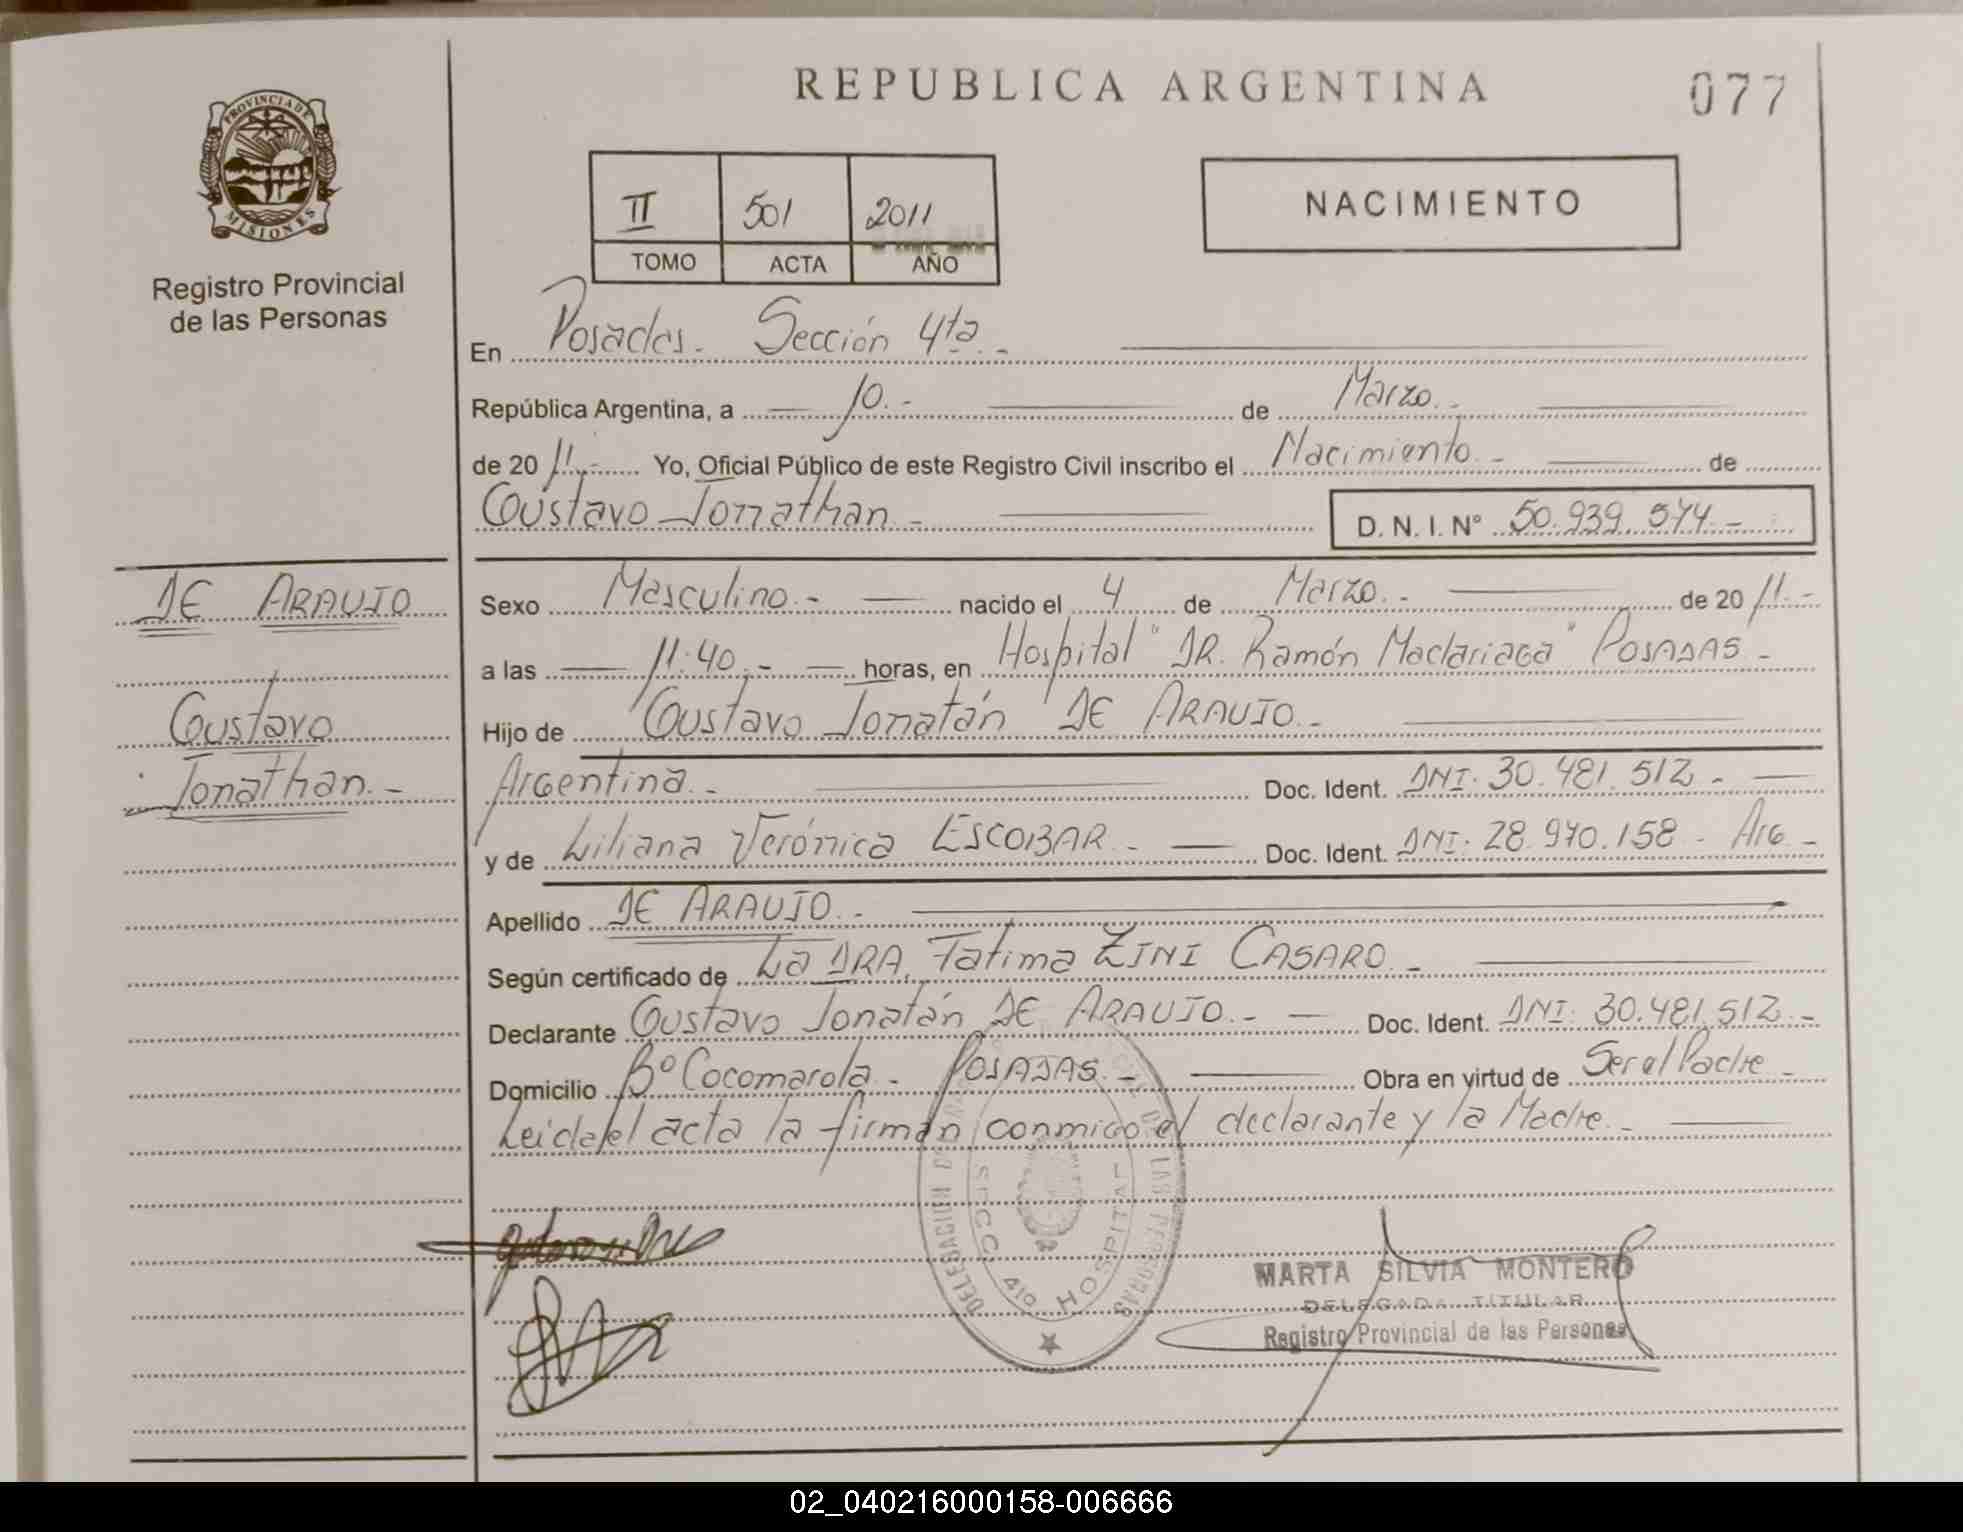 REPUBLICA ARGENTINA
077
PROVINCIA DE
MISIONES
Registro Provincial
de las Personas
II 501 2011
TOMO ACTA AÑO
NACIMIENTO
En Posadas. Sección 4ta.-
República Argentina, a 10.- de Marzo.-
de 20 11.- Yo, Oficial Público de este Registro Civil inscribo el Nacimiento.- de
Gustavo Jonathan.-
D. N. I. N° 50.939.574.-
DE ARAUJO
Gustavo
Jonathan.-
Sexo Masculino.- nacido el 4 de Marzo.- de 20 11.-
a las 11:40.- horas, en Hospital "DR. Ramón Madariaga" POSADAS-
Hijo de Gustavo Jonatán DE ARAUJO.-
Argentina.- Doc. Ident. DNI: 30.481.512.-
y de Liliana Verónica ESCOBAR.- Doc. Ident. DNI: 28.970.158- Arg-
Apellido DE ARAUJO.-
Según certificado de La DRA. Fatima ZINI CASARO.-
Declarante Gustavo Jonatán DE ARAUJO.- Doc. Ident. DNI: 30.481.512.-
Domicilio B° Cocomarola- POSADAS.- Obra en virtud de Ser el Padre-
Leida el acta la firman conmigo el declarante y la Madre.-
DELEGACION DE LAS PERSONAS
SECC 4ta HOSPITAL
MARTA SILVIA MONTERO
DELEGADA TITULAR
Registro Provincial de las Personas
02_040216000158-006666